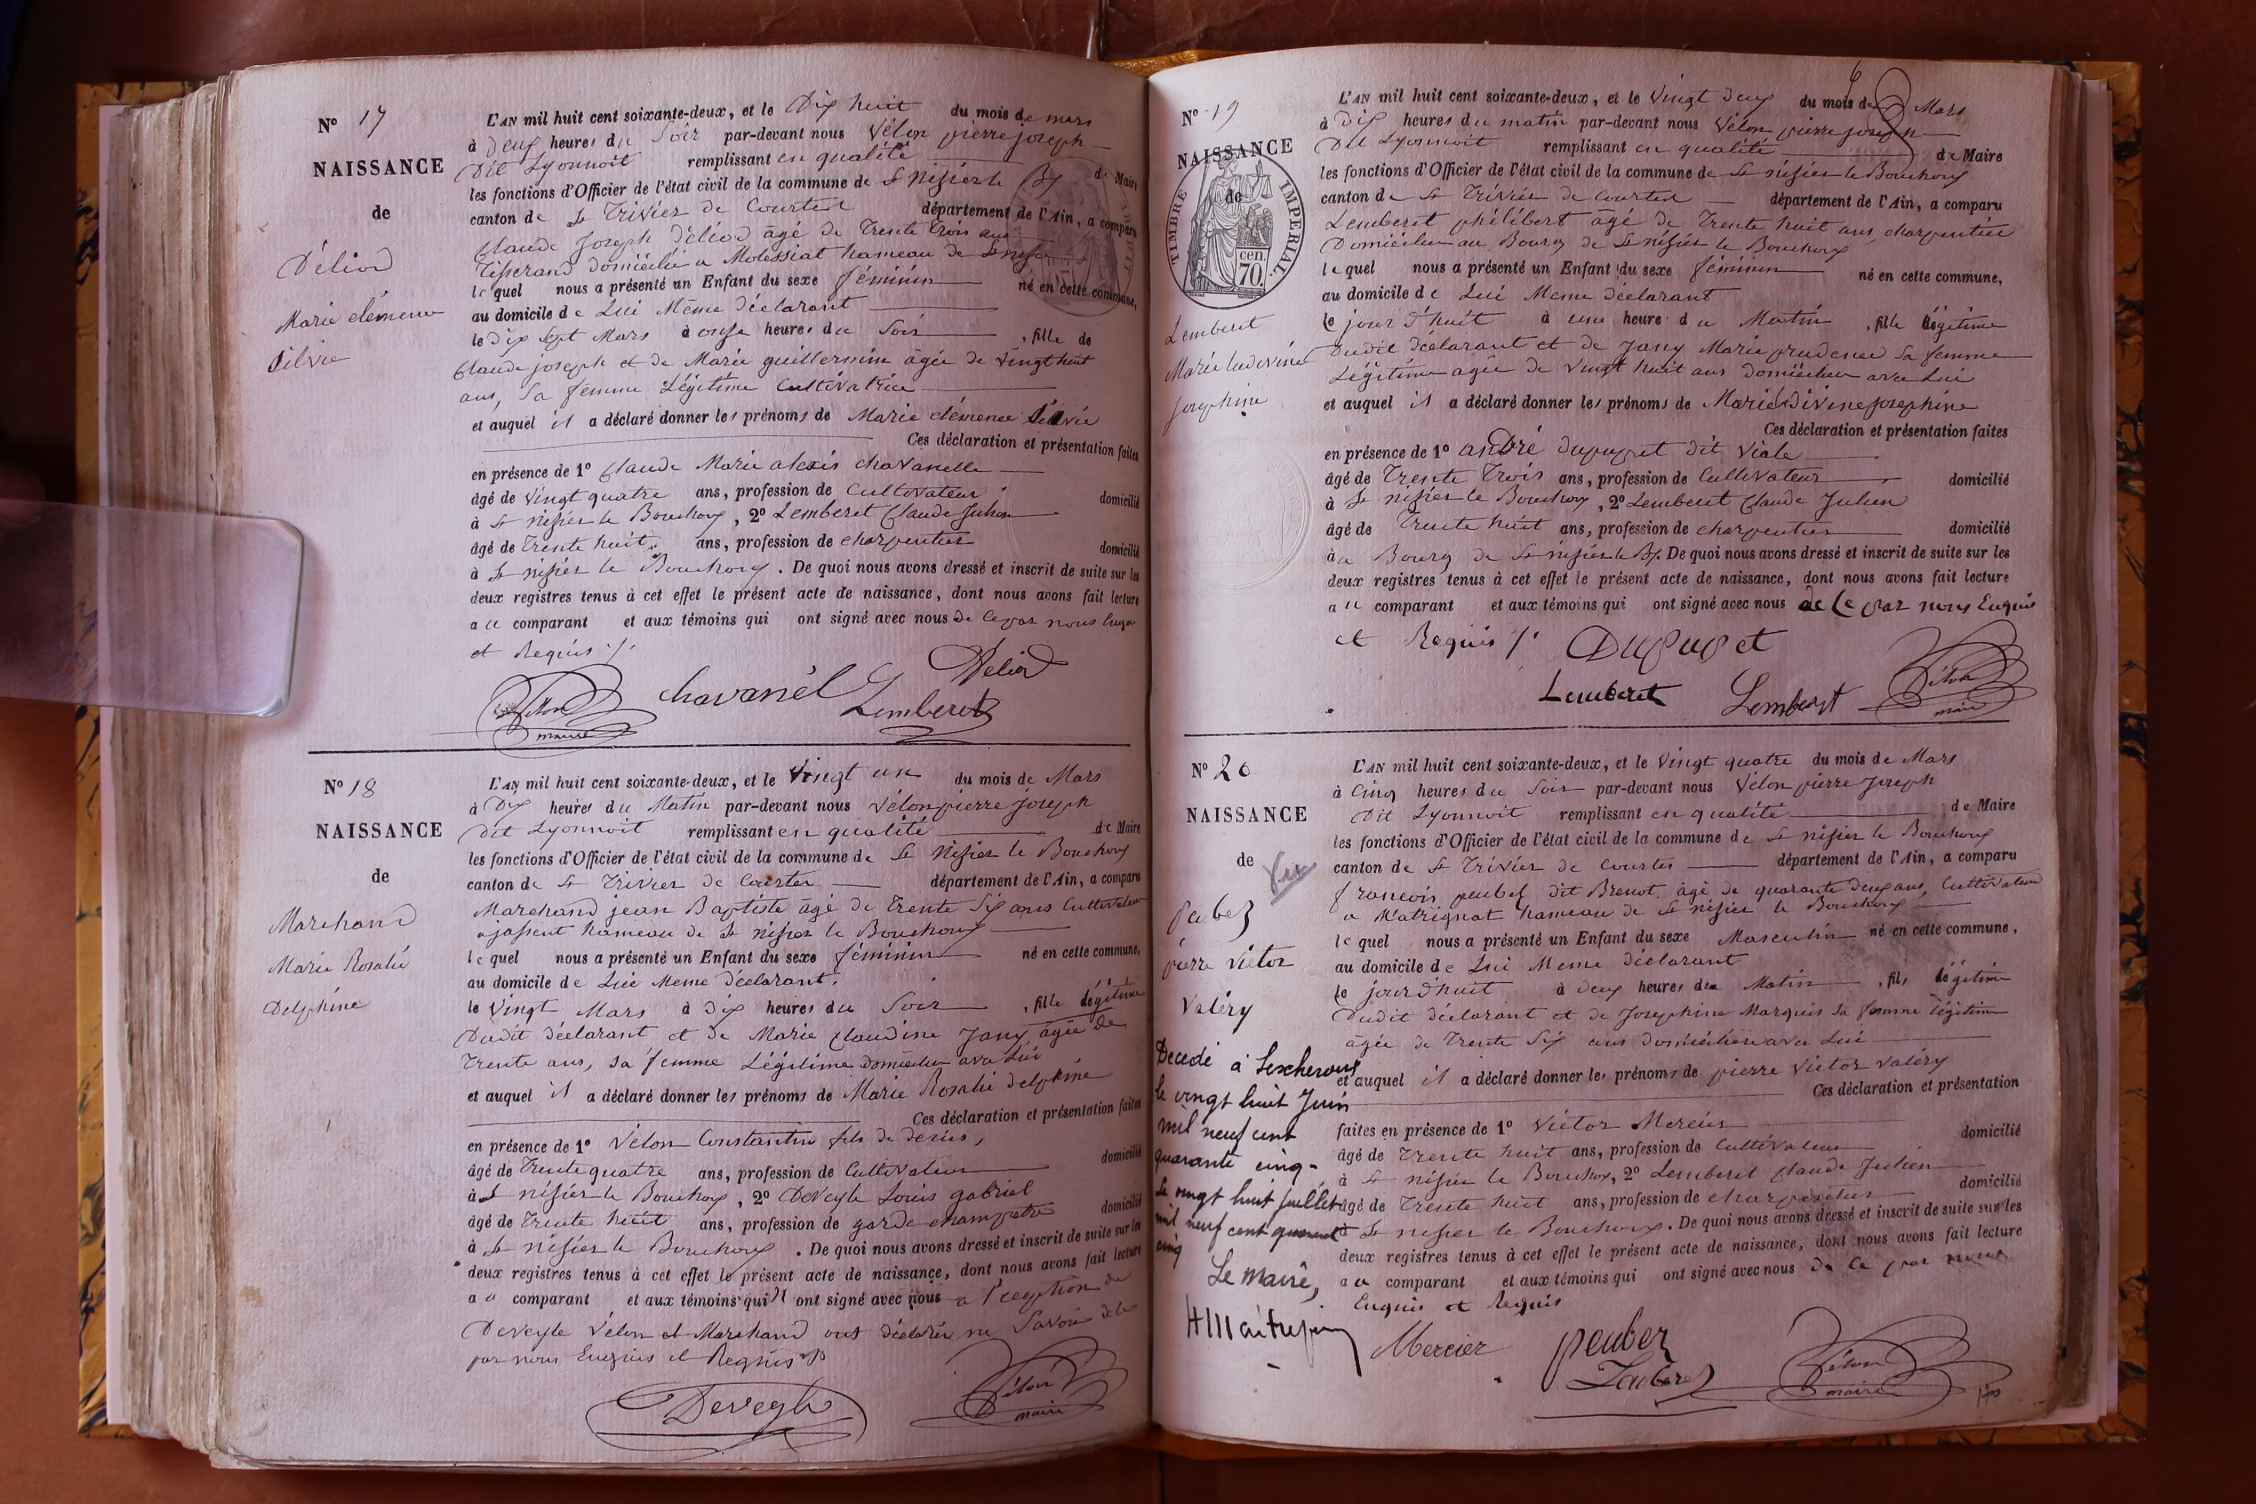 N° 17
NAISSANCE
de
Déliod
Marie clémence
Silvie
L'AN mil huit cent soixante-deux, et le Dix huit du mois de mars
à Deux heures du Soir par-devant nous Vélon pierre joseph
Dit Lyonnoit remplissant en qualité de Maire
les fonctions d'Officier de l'état civil de la commune de St Nisier le Bx
canton de St Trivier de Courtes département de l'Ain, a comparu
Claude Joseph Déliod âgé de Trente trois ans
Tisserand domicilié a Molessiat hameau de St nisier
lequel nous a présenté un Enfant du sexe féminin né en cette commune,
au domicile de Lui Même déclarant
le dix sept Mars à onze heures du Soir, fille de
Claude joseph et de Marie guillermin âgée de vingt huit
ans, Sa femme Légitime Cultivatrice
et auquel il a déclaré donner les prénoms de Marie clémence Silvie
Ces déclaration et présentation faites
en présence de 1° Claude Marie alexis chavanelle
âgé de vingt quatre ans, profession de Cultivateur domicilié
à St nisier le Bouchoux, 2° Lemberet Claude Julien
âgé de Trente huit ans, profession de charpentier domicilié
à St nisier le Bouchoux. De quoi nous avons dressé et inscrit de suite sur les
deux registres tenus à cet effet le présent acte de naissance, dont nous avons fait lecture
au comparant et aux témoins qui ont signé avec nous de ce par nous Enquis
et Requis ./.
Déliod
chavanél
Lemberet
Vélon
maire
N° 18
NAISSANCE
de
Marchand
Marie Rosalie
Delphine
L'AN mil huit cent soixante-deux, et le Vingt un du mois de Mars
à Dix heures du Matin par-devant nous Vélon pierre joseph
Dit Lyonnoit remplissant en qualité de Maire
les fonctions d'Officier de l'état civil de la commune de St Nisier le Bouchoux
canton de St Trivier de Courtes département de l'Ain, a comparu
Marchand jean Baptiste âgé de Trente Six ans Cultivateur
hameau de St Nisier le Bouchoux
lequel nous a présenté un Enfant du sexe féminin né en cette commune,
au domicile de Lui Meme déclarant.
le Vingt Mars à dix heures du Soir, fille légitime
Dudit déclarant et de Marie Claudine Jany âgée de
Trente ans, Sa femme Légitime domiciliée avec Lui
et auquel il a déclaré donner les prénoms de Marie Rosalie delphine
Ces déclaration et présentation faites
en présence de 1° Vélon Constantin fils de denis,
âgé de Trente quatre ans, profession de Cultivateur domicilié
à St nisier le Bouchoux, 2° Deveyle Louis gabriel
âgé de Trente huit ans, profession de garde champetre domicilié
à St nisier le Bouchoux. De quoi nous avons dressé et inscrit de suite sur les
deux registres tenus à cet effet le présent acte de naissance, dont nous avons fait lecture
au comparant et aux témoins qui ont signé avec nous a l'exeption de
Deveyle Vélon et Marchand ont déclaré ne Savoir de ce
par nous Enquis et Requis
Deveyle
Vélon
maire
6
N° 19
NAISSANCE
de
TIMBRE IMPERIAL.
70 cen.
Lemberet
Marie ludivine
josephine
L'AN mil huit cent soixante-deux, et le Vingt deux du mois de Mars
à Dix heures du matin par-devant nous Vélon pierre joseph
Dit Lyonnoit remplissant en qualité de Maire
les fonctions d'Officier de l'état civil de la commune de St nisier le Bouchoux
canton de St Trivier de Courtes département de l'Ain, a comparu
Lemberet philibert âgé de Trente huit ans, charpentier
Domicilié au Bourg de St nisier le Bouchoux
lequel nous a présenté un Enfant du sexe féminin né en cette commune,
au domicile de Lui Meme déclarant
le jour d'huit à une heure du Matin, fille légitime
Dudit déclarant et de Jany Marie prudence Sa femme
Légitime âgée de vingt huit ans domiciliée avec Lui
et auquel il a déclaré donner les prénoms de Marie ludivine josephine
Ces déclaration et présentation faites
en présence de 1° andré dupupet dit Viale
âgé de Trente Trois ans, profession de Cultivateur domicilié
à St nisier le Bouchoux, 2° Lemberet Claude Julien
âgé de Trente huit ans, profession de charpentier domicilié
à a Bourg de St nisier le Bx. De quoi nous avons dressé et inscrit de suite sur les
deux registres tenus à cet effet le présent acte de naissance, dont nous avons fait lecture
au comparant et aux témoins qui ont signé avec nous de Ce par nous Enquis
et Requis ./.
Dupupet
Lemberet
Lemberet
Vélon
maire
N° 20
NAISSANCE
de
Vu
peubez
pierre victor
Valéry
Décédé à Lescheroux
le vingt huit Juin
mil neuf cent
quarante cinq -
Le vingt huit Juillet
mil neuf cent quarante
cinq
Le Maire,
L'AN mil huit cent soixante-deux, et le Vingt quatre du mois de Mars
à Cinq heures du Soir par-devant nous Vélon pierre joseph
Dit Lyonnoit remplissant en qualité de Maire
les fonctions d'Officier de l'état civil de la commune de St nisier le Bouchoux
canton de St Trivier de Courtes département de l'Ain, a comparu
francois peubez dit Brenot âgé de quarante deux ans, Cultivateur
a Matrignat hameau de St nisier le Bouchoux
lequel nous a présenté un Enfant du sexe Masculin né en cette commune,
au domicile de Lui Meme déclarant
le jour d'huit à deux heures du Matin, fils légitime
Dudit déclarant et de Josephine Marquis Sa femme légitime
âgée de Trente Six ans domiciliée avec Lui
et auquel il a déclaré donner les prénoms de pierre victor valéry
Ces déclaration et présentation
faites en présence de 1° Victor Mercier domicilié
âgé de Trente huit ans, profession de Cultivateur
à St nisier le Bouchoux, 2° Lemberet Claude Julien domicilié
âgé de Trente huit ans, profession de charpentier
à St nisier le Bouchoux. De quoi nous avons dressé et inscrit de suite sur les
deux registres tenus à cet effet le présent acte de naissance, dont nous avons fait lecture
au comparant et aux témoins qui ont signé avec nous de ce par nous
Enquis et Requis
Mercier
peuber
Vélon
maire